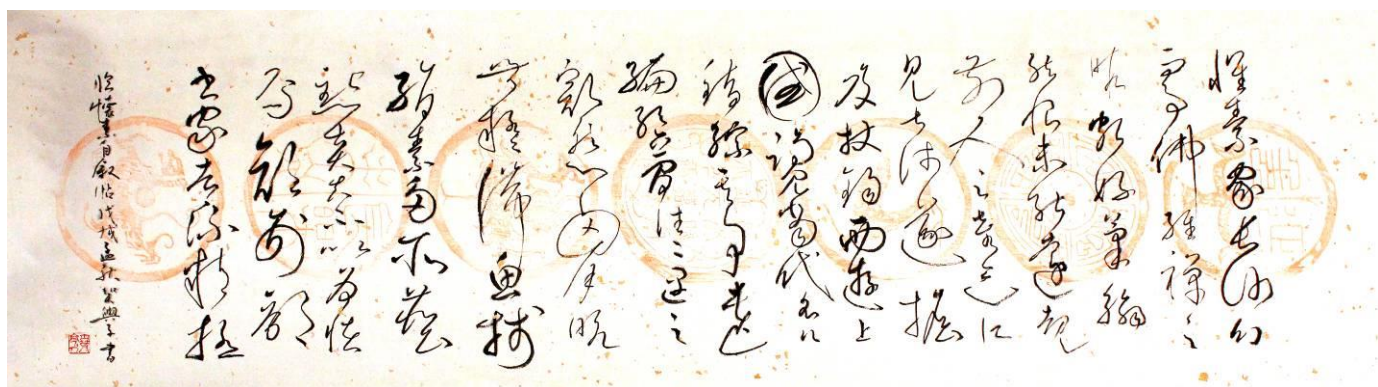 懷素家長沙幼
而事佛經禪之
暇頗好筆翰
然恨未能遠覩
前人之奇迹所
見甚淺遂擔
笈杖錫西遊上
國謁見當代名公
錯綜其事遺
編絕簡往々遇之
豁然心胸略
無疑滯魚牋
絹素多所塵
點士大夫不以為怪
焉顏刑部
書家者流精極
臨懷素自叙帖戊戌孟秋 興子書